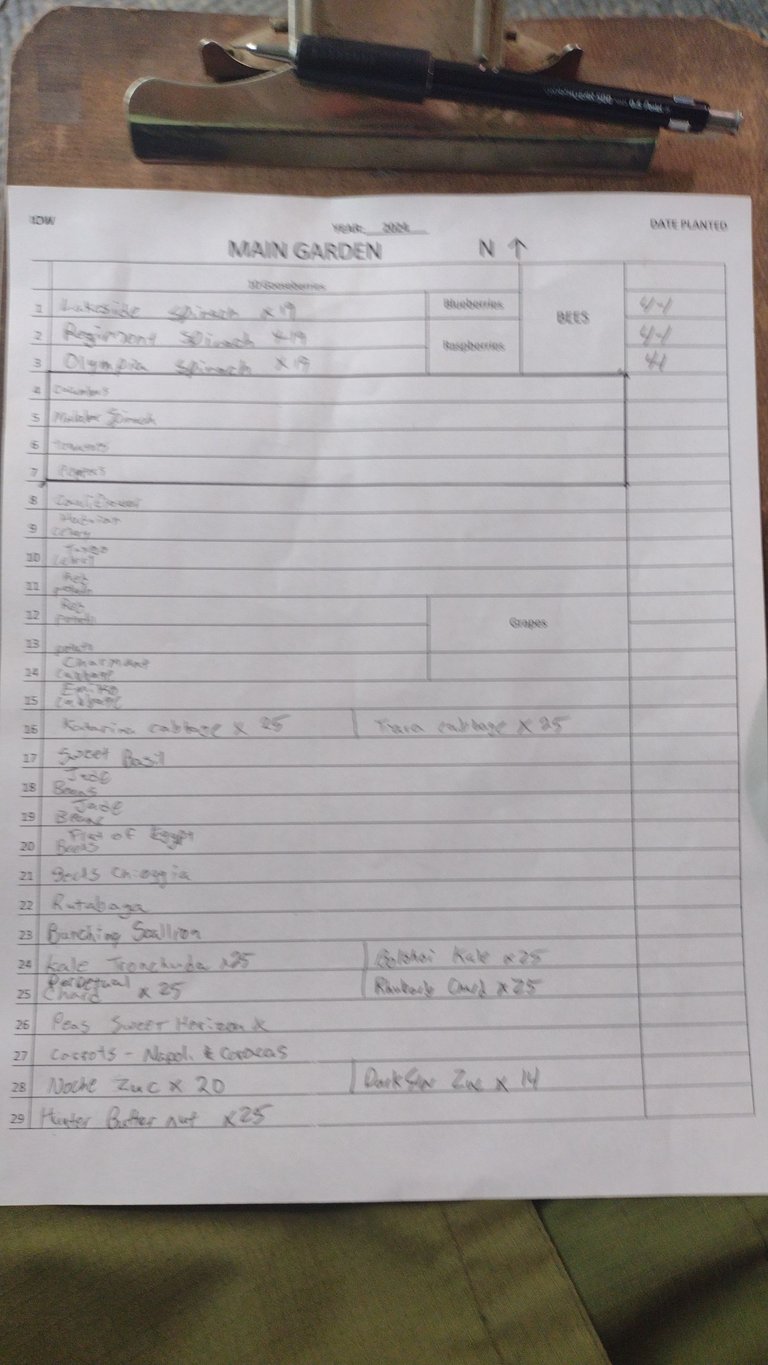 YEAR: 2024
DATE PLANTED
MAIN GARDEN N ↑
Gooseberries
1 Lakeside Spinach x 19 Blueberries BEES 4-1
2 Regiment Spinach x 19 Raspberries 4-1
3 Olympia Spinach x 19
4 Cucumbers
5 Malabar Spinach
6 Tomatoes
7 Peppers
8 Cauliflower
9
10 Tango
Celery
11 Red
potato
12 Red
potato Grapes
13 potato
14 Charmant
cabbage
15 Emiko
cabbage
16 Katarina cabbage x 25 Tiara cabbage x 25
17 Sweet Basil
18 Jade
Beans
19 Jade
Beans
20 Flat of Egypt
Beets
21 Beets Chioggia
22 Rutabaga
23 Bunching Scallion
24 Kale Tronchuda x 25 Kale x 25
25 Perpetual
Chard x 25 Rhubarb Chard x 25
26 Peas Sweet Horizon
27 Carrots - Napoli & Caracas
28 Noche Zuc x 20 Dark Star Zuc x 14
29 Hunter Butter nut x 25